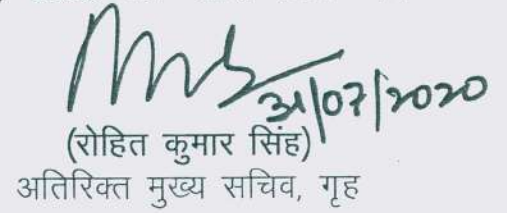 31/07/2020
(रोहित कुमार सिंह)
अतिरिक्त मुख्य सचिव, गृह